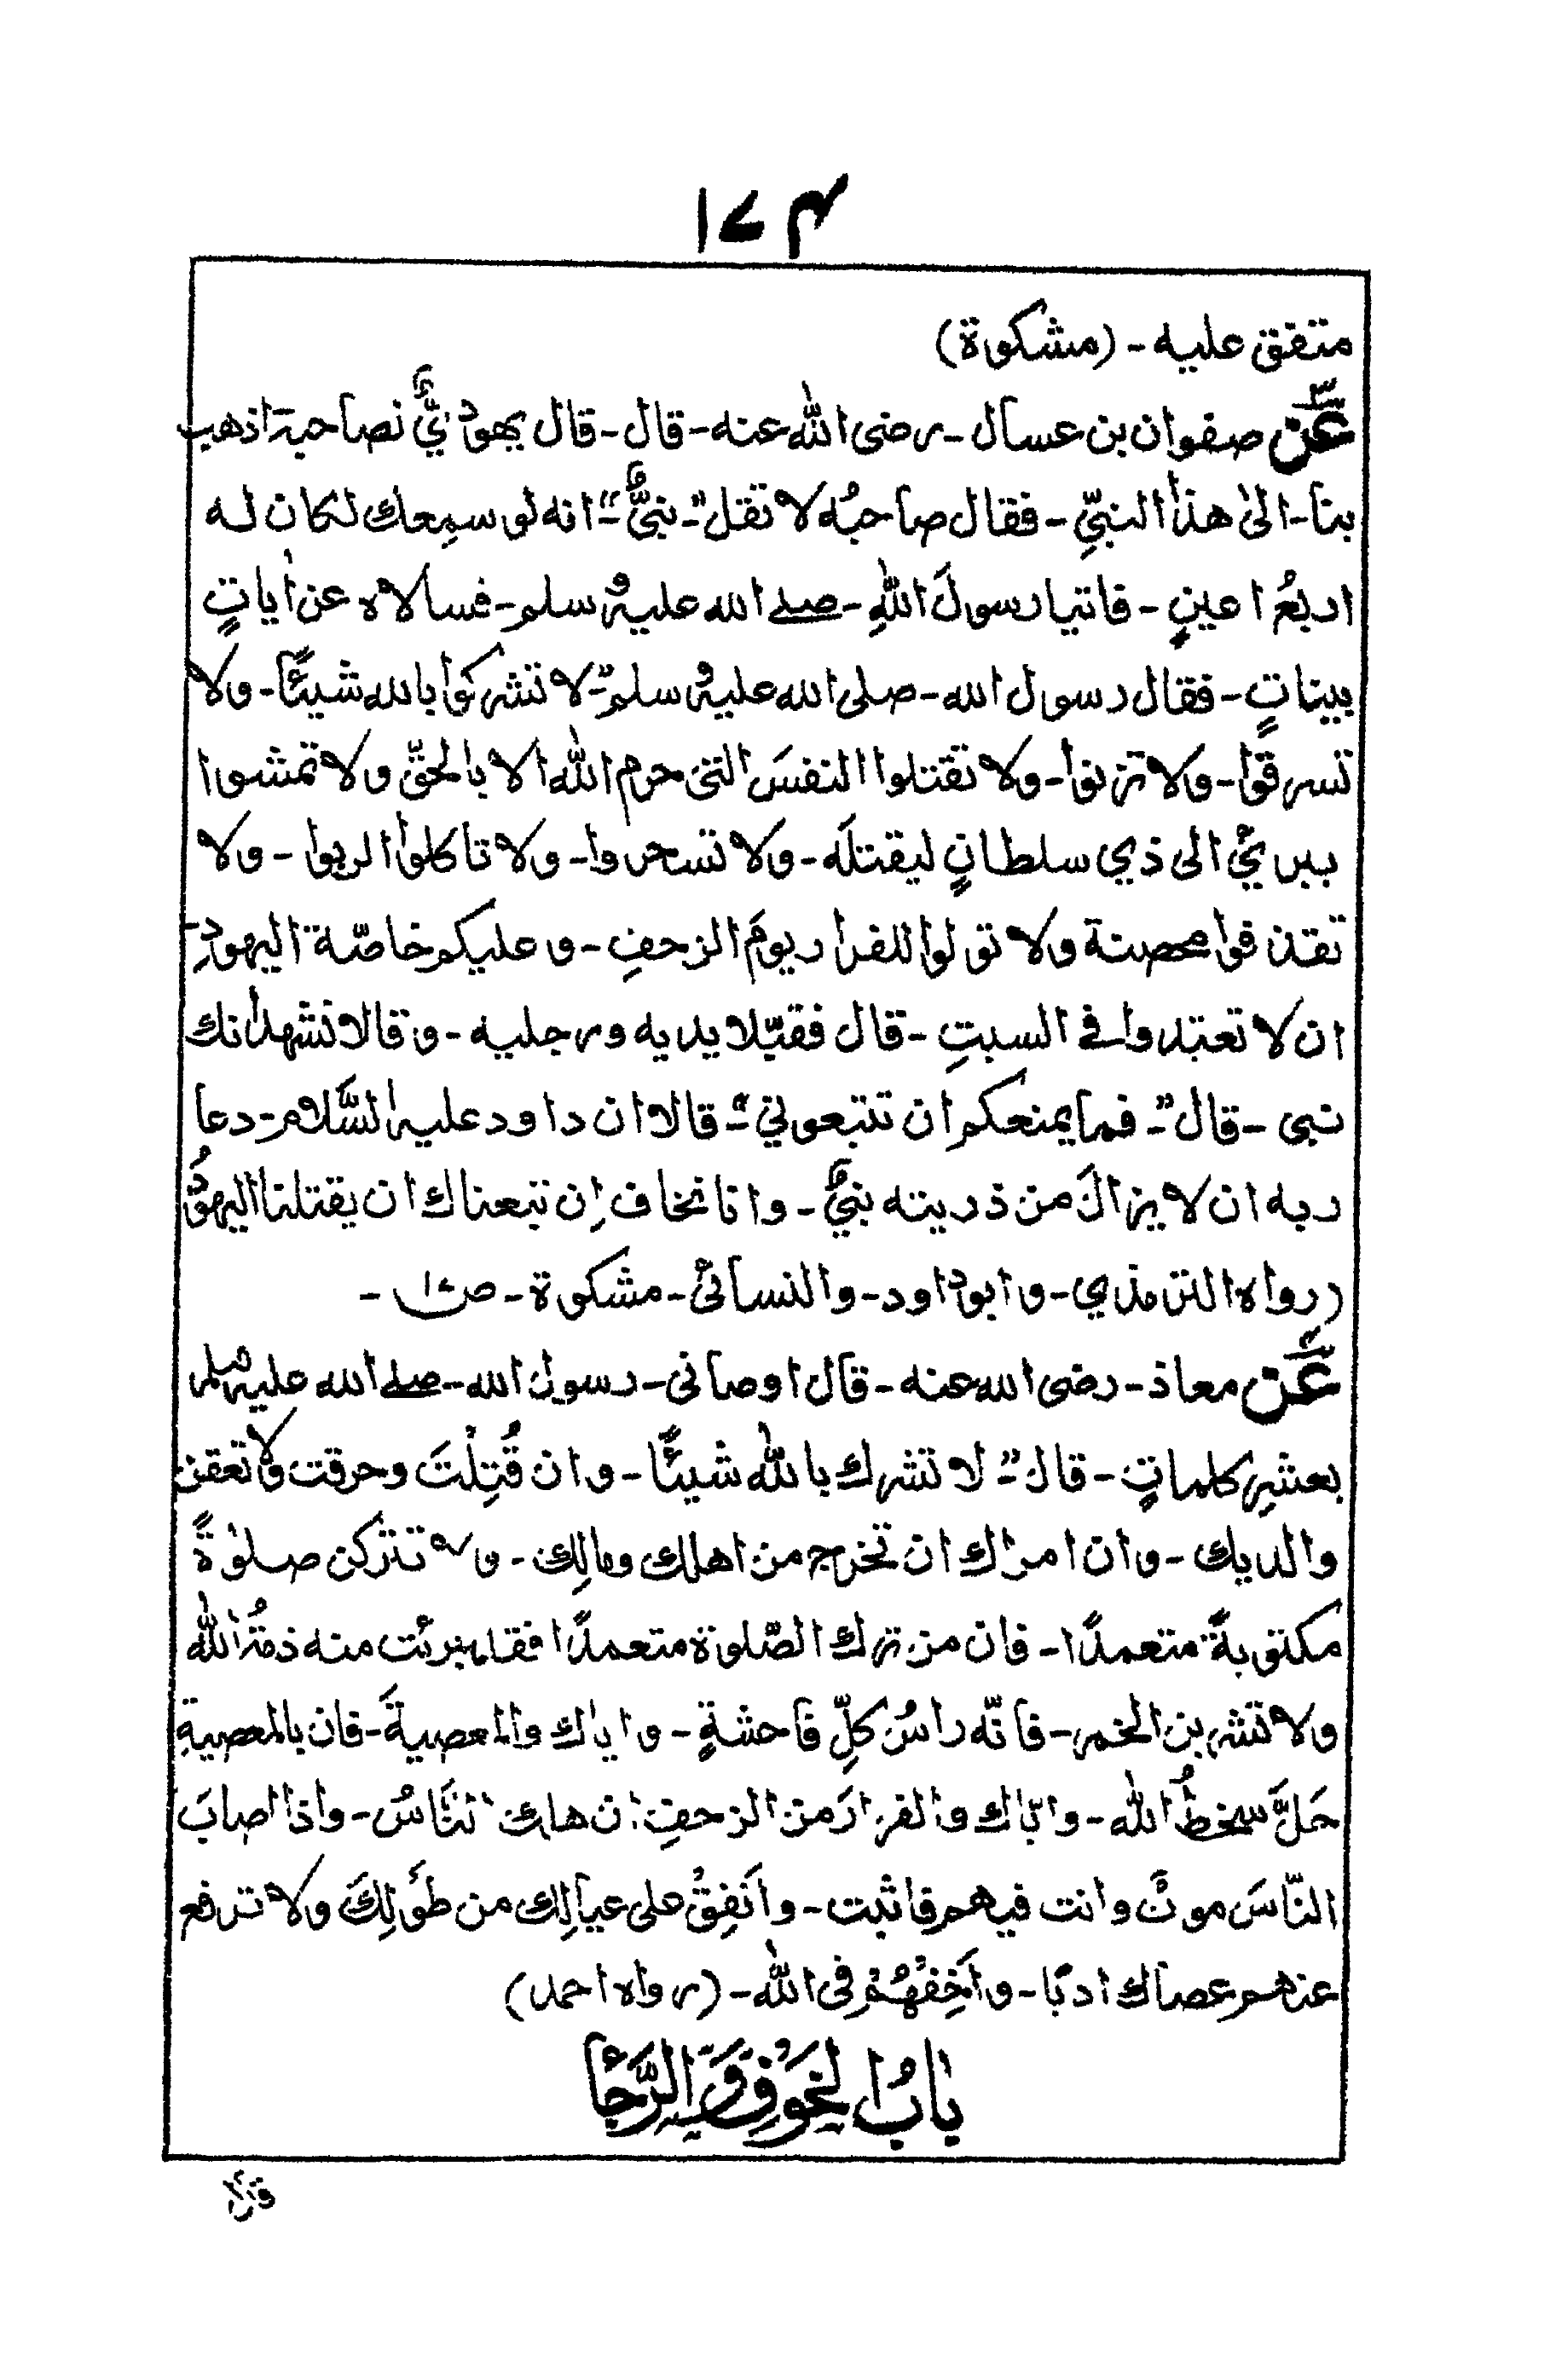 ۱۷۴
متفق علیه - (مشکوة)
عَنْ صفوان بن عسال - رضی الله عنه - قال - قال یهودیٌّ لصاحبه اذهب
بنا - الیٰ هذا النبیِّ - فقال صاحبُه لا تقل "- نبیٌّ -" انه لو سمِعك لكان له
اربعُ اعینٍ - فاتیا رسولَ اللهِ - صلے الله علیه و سلم - فسالاه عن اٰیاتٍ
بیناتٍ - فقال رسول الله - صلی الله علیه و سلم "- لا تشرکوا بالله شیئًا - ولا
تسرقوا - ولا تزنوا - ولا تقتلوا النفسَ التی حرم الله الا بالحقِّ ولا تمشوا
ببریٍٔ الی ذی سلطانٍ لیقتلَه - ولا تسحروا - ولا تاکلوا الربوا - ولا
تقذفوا محصنة ولا تولوا للفرار یومَ الزحفِ - و علیکم خاصّة الیهودِ
ان لا تعتدوا فے السبتِ - قال فقبّلا یدیه ورجلیه - وقالا نشهد انك
نبی - قال "- فما یمنعکم ان تتبعونی -" قالا ان داود علیه السَّلام - دعا
ربه ان لا یزالَ من ذریته نبیٌّ - وانا نخاف اِن تبعناك ان یقتلنا الیهودُ
(رواه الترمذی - وابوداود - والنسائی - مشکوة - ص۱۷ -
عَنْ معاذ - رضی الله عنه - قال اوصانی - رسول الله - صلے الله علیه وسلم
بعشرِ کلماتٍ - قال "- لا تشرك بالله شیئًا - وان قُتِلْتَ وحرقت ولا تعقن
والدیك - وان امراك ان تخرج من اهلك ومالِك - ولا تترکن صلوٰةً
مکتوبةً متعمدًا - فان من ترك الصّلوة متعمدًا فقد برئت منه ذمةُ الله
ولا تشربن الخمر - فانّه راسُ کلِّ فاحشةٍ - وایاك والمعصیةَ - فان بالمعصیةِ
حَلَّ سخطُ الله - وایّاك والفرارَ من الزحفِ ان هلك النَّاسُ - واذا اصابَ
النّاسَ موتٌ وانت فیهم فاثبت - واَنفِقْ علی عیالِك من طَولِكَ ولا ترفع
عنهم عصاك ادبًا - واَخِفْهُمْ فی الله - (رواه احمد)
بَابُ الخَوْفِ وَالرَّجَأ